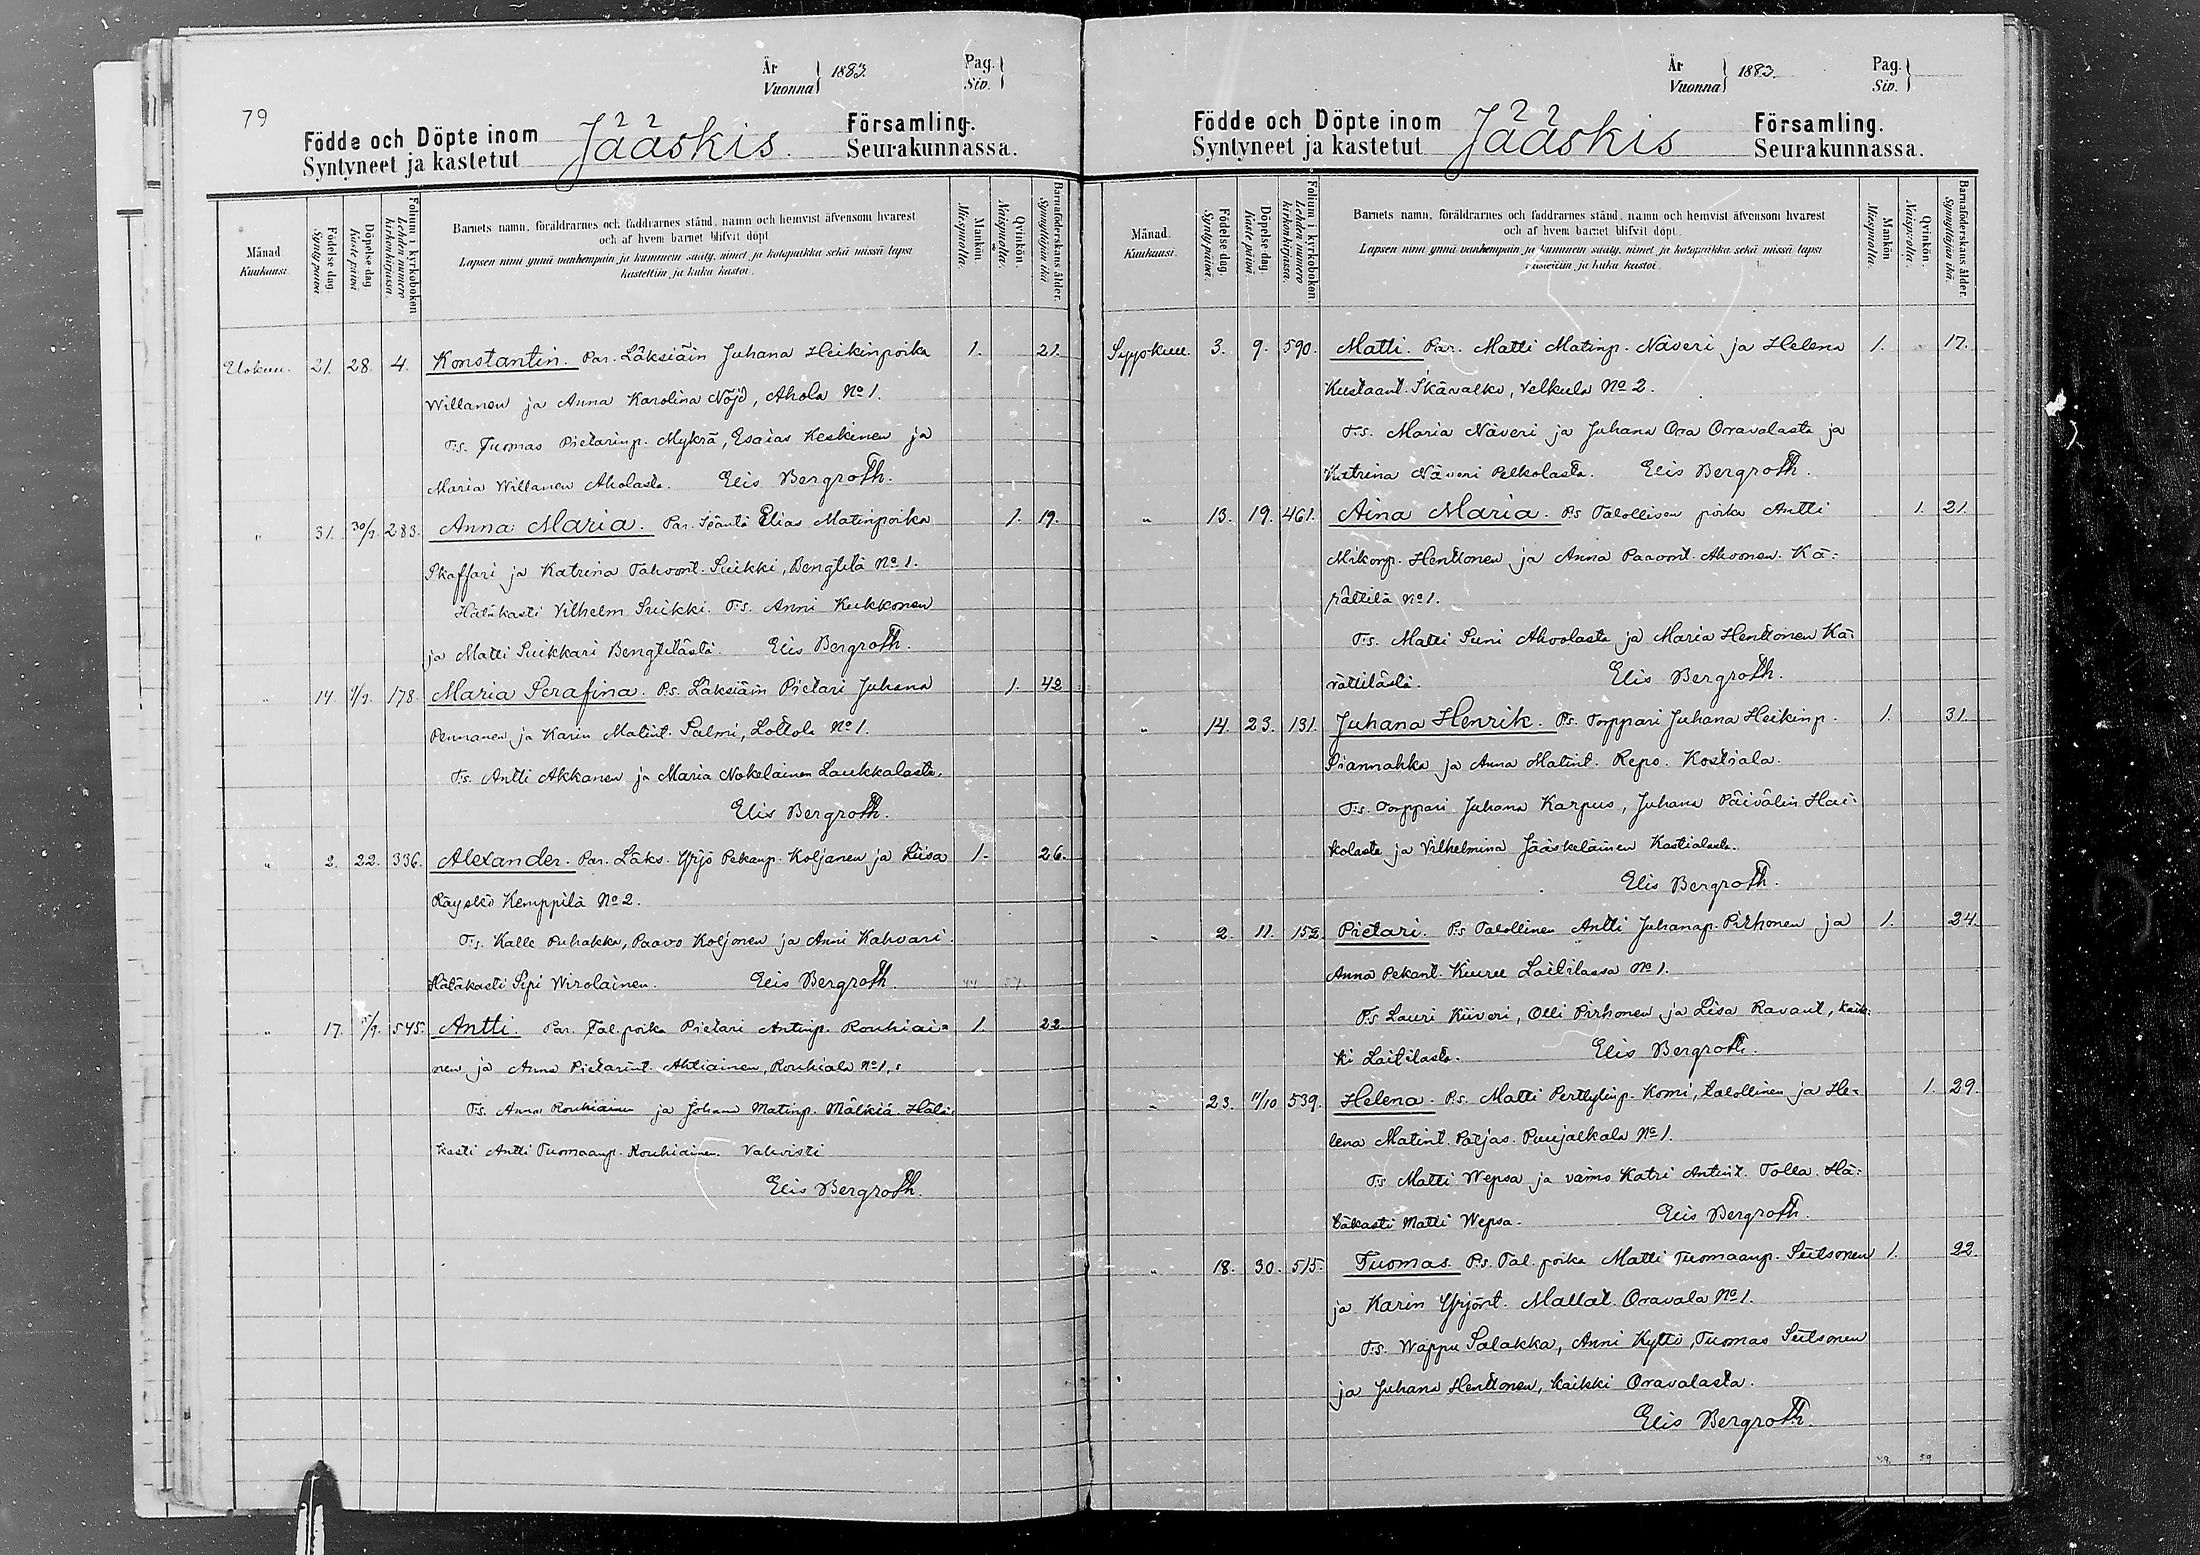 79
År
Vuonna 1883.
Pag.
Siv.
Födde och Döpte inom
Syntyneet ja kastetut
Jääskis.
Församling.
Seurakunnassa.
Månad
Kuukausi.
Födelse dag.
Synty päivä
Döpelse dag.
Kaste päivä
Folium i kyrkoboken
Lehden numero kirkonkirjassa
Barnets namn, föräldrarnes och faddrarnes stånd, namn och hemvist äfvensom hvarest
och af hvem barnet blifvit döpt
Lapsen nimi ynnä vanhempain ja kummein sääty, nimet ja kotopaikka sekä missä lapsi
kastettiin ja kuka kastoi.
Mankön.
Miespuolia.
Qvinkön.
Naispuolia.
Barnaföderskans ålder.
Synnyttäjän ikä
Elokuu. 21. 28. 4. Konstantin. Par. Läksiäin Juhana Heikinpoika 1. 21.
Willanen ja Anna Karolina Nöjd, Ahola No 1.
T:s. Tuomas Pietarinp. Mykrä, Esaias Keskinen ja
Maria Willanen Aholasta. Elis Bergroth.
" 31. 30/9. 283. Anna Maria. Par. Isäntä Elias Matinpoika 1. 19.
Skaffari ja Katrina Tahvont. Suikki, Bengtilä No 1.
Hätäkasti Vilhelm Suikki. T:s. Anni Kukkonen
ja Matti Suikkari Bengtilästä. Elis Bergroth.
" 14. 9/9. 178. Maria Serafina. Ps. Läksiäin Pietari Juhana 1. 42
Pennanen ja Karin Matint. Salmi, Lottola No 1.
T:s. Antti Akkanen ja Maria Nokelainen Laukkalasta.
Elis Bergroth.
" 2. 22. 336. Alexander. Par. Läks. Yrjö Pekanp. Koljonen ja Liisa 1. 26.
Räyskö Kemppilä No 2.
T:s. Kalle Puhakka, Paavo Koljonen ja Anni Kahvari.
Hätäkasti Sipi Wirolainen. Elis Bergroth.
" 17. 545. Antti. Par. Tal. poika Pietari Antinp. Rouhiai= 1. 22
nen ja Anna Pietarint. Ahtiainen, Rouhiala No 1.
T:s. Anna Rouhiainen ja Johan Matinp. Mälkiä. Hätä=
kasti Antti Tuomaanp. Rouhiainen. Vahvisti
Elis Bergroth.
År
Vuonna 1883.
Pag.
Siv.
Födde och Döpte inom
Syntyneet ja kastetut
Jääskis
Församling.
Seurakunnassa.
Månad.
Kuukausi.
Födelse dag.
Synty päivä.
Döpelse dag.
Kaste päivä
Folium i kyrkoboken
Lehden numero kirkonkirjassa.
Barnets namn, föräldrarnes och faddrarnes stånd, namn och hemvist äfvensom hvarest
och af hvem barnet blifvit döpt.
Lapsen nimi ynnä vanhempain ja kummein sääty, nimet ja kotopaikka sekä missä lapsi
kastettiin ja kuka kastoi.
Mankön.
Miespuolia.
Qvinkön.
Naispuolia.
Barnaföderskans ålder.
Synnyttäjän ikä.
Syyskuu. 3. 9. 590. Matti. Par. Matti Matinp. Näveri ja Helena 1. 17.
Kustaant. Skävalko, Velkula No 2.
T:s. Maria Näveri ja Juhana Ora Oravalasta ja
Katrina Näveri Pelkolasta. Elis Bergroth.
" 13. 19. 461. Aina Maria. Ps Talollisen poika Antti 1. 21.
Mikonp. Henttonen ja Anna Paavont. Ahvonen. Kä:
rättilä No 1.
T:s. Matti Suni Ahvolasta ja Maria Henttonen Kä:
rättilästä. Elis Bergroth.
" 14. 23. 131. Juhana Henrik. Ps. Torppari Juhana Heikinp. 1. 31.
Piannahka ja Anna Matint. Repo. Kostiala.
T:s. Torppari Juhana Karpus, Juhana Päivälin Hai:
kolasta ja Vilhelmina Jääskeläinen Kostialasta.
Elis Bergroth.
" 2. 11. 152. Pietari. Ps Talollinen Antti Juhanap. Pirhonen ja 1. 24.
Anna Pekant. Kiuru Laitilassa No 1.
T:s Lauri Kiiveri, Olli Pirhonen ja Liisa Ravant, kaik:
ki Laitilasta. Elis Bergroth.
" 23. 11/10 539. Helena. Ps. Matti Perttylinp. Komi, talollinen ja He= 1. 29.
lena Matint. Paljas. Puujalkala No 1.
T:s Matti Wepsa ja vaimo Katri Antint. Tolla. Hä:
täkasti Matti Wepsa. Elis Bergroth.
" 18. 30. 515. Tuomas. Ps. Tal. poika Matti Tuomaanp. Sutsonen 1. 22.
ja Karin Yrjönt. Mallat. Oravala No 1.
T:s. Wappu Salakka, Anni Kyttö, Tuomas Sutsonen
ja Juhana Henttonen, kaikki Oravalasta.
Elis Bergroth.